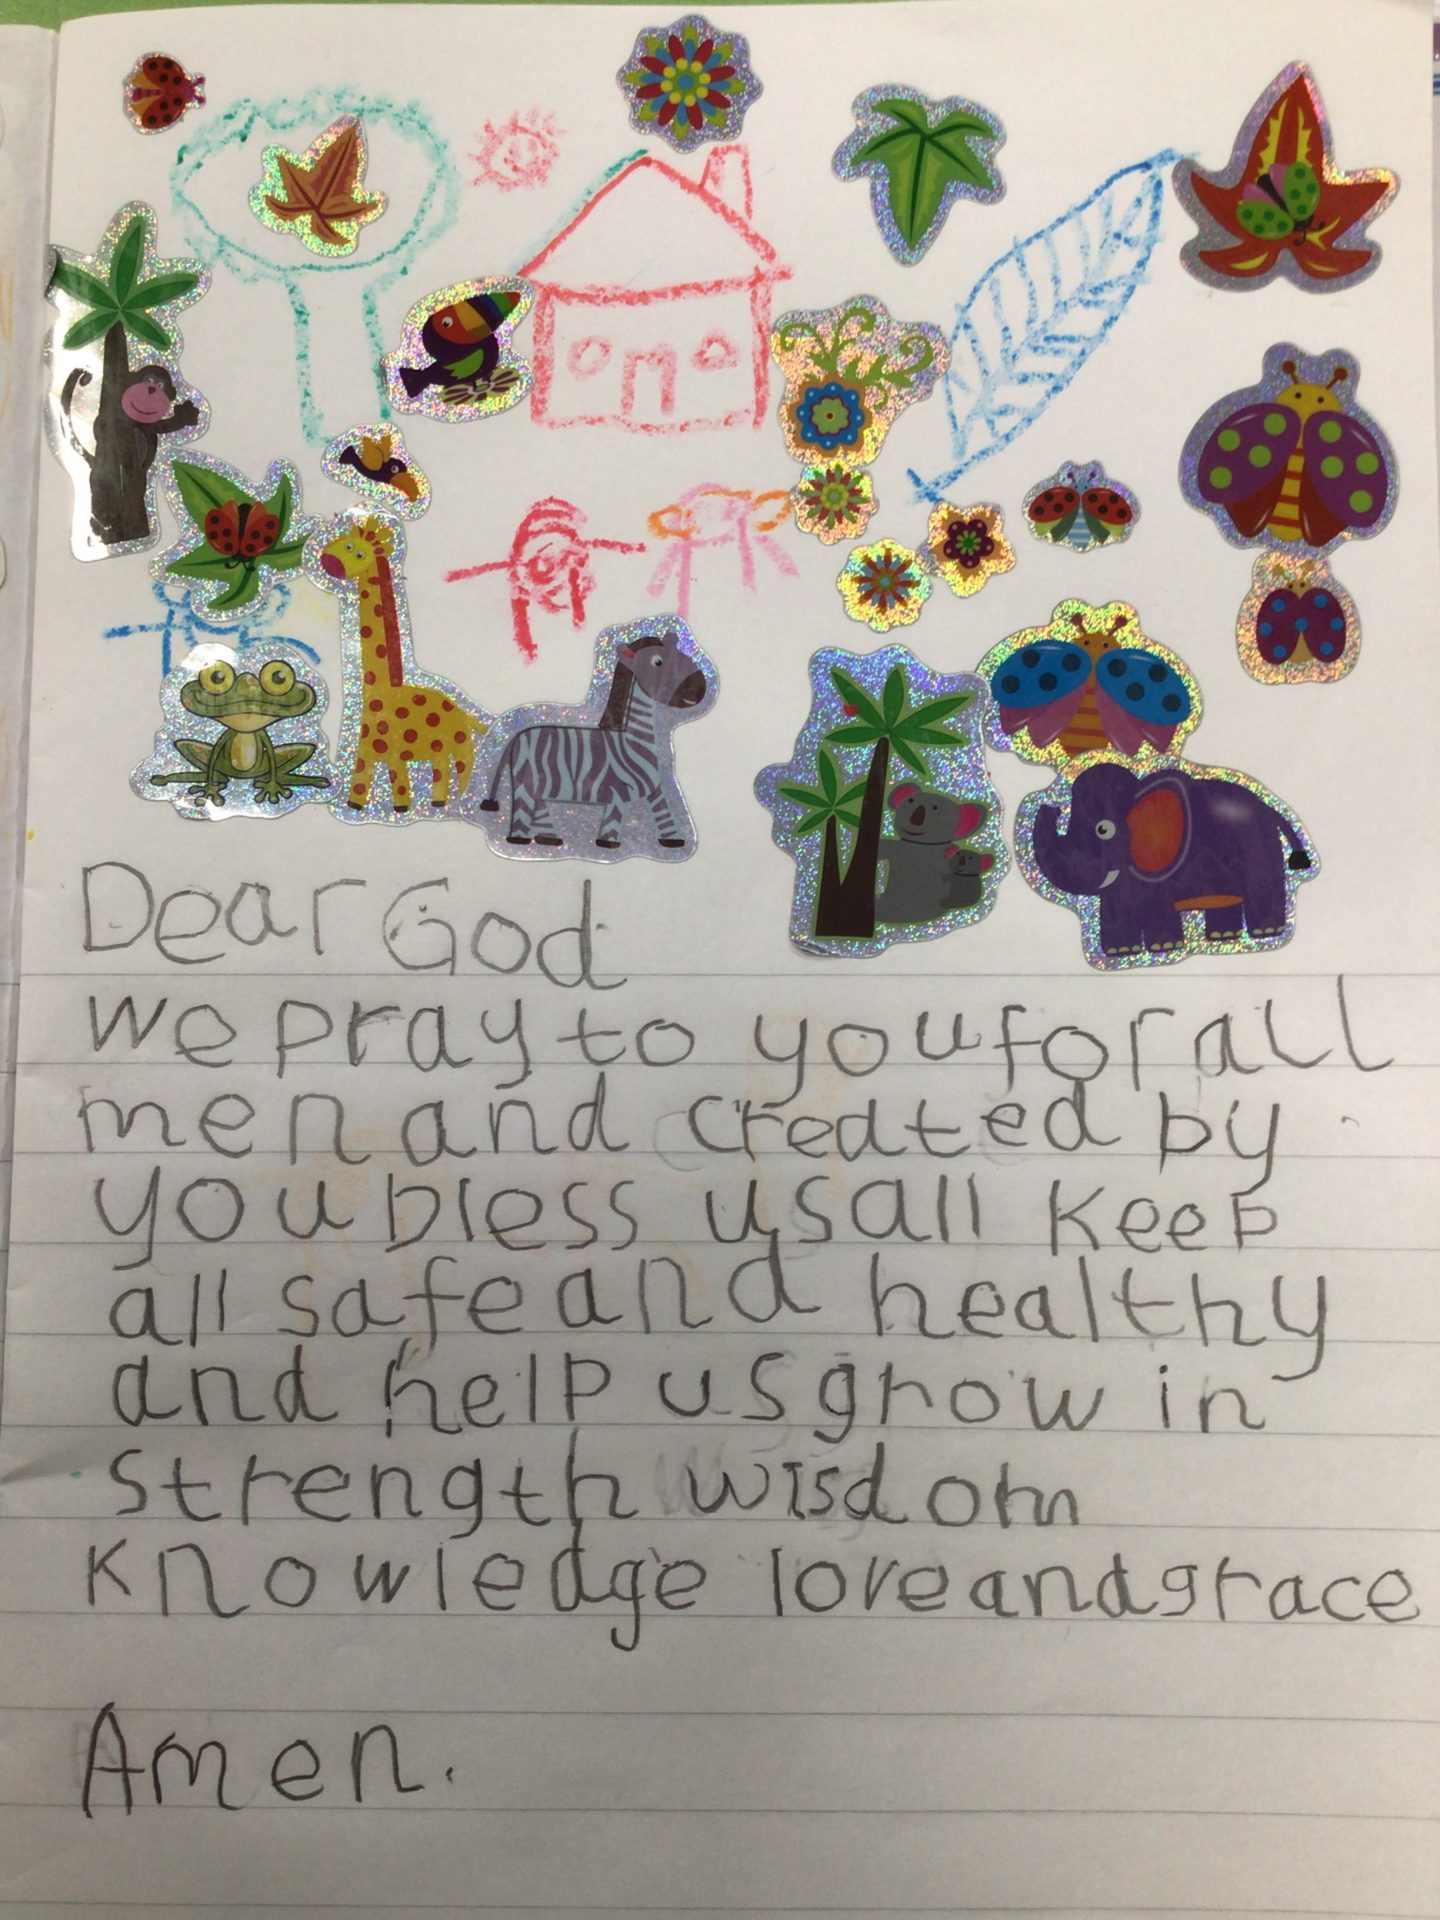 Dear God
we pray to you for all
men and created by
you bless us all keep
all safe and healthy
and help us grow in
strength wisdom
knowledge love and grace
Amen.